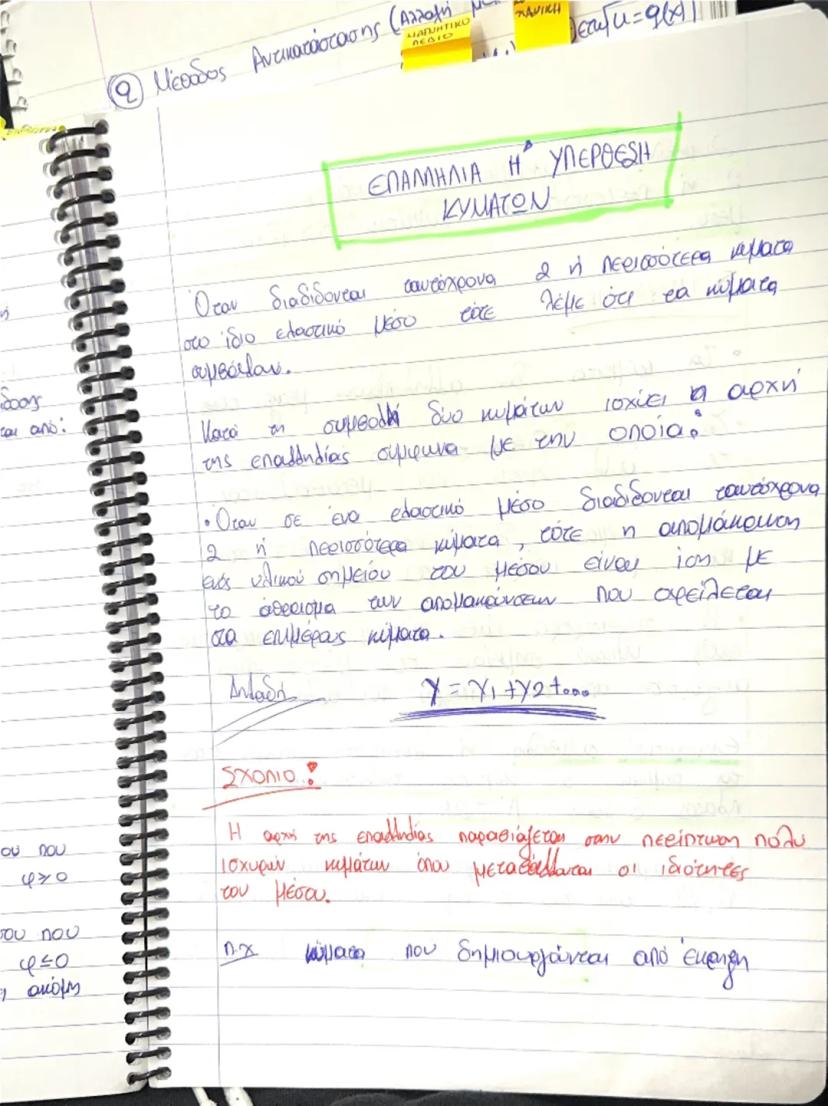 9 Μέθοδος Αντικατάστασης (Αλλαγή
ΜΑΓΝΗΤΙΚΟ
ΠΕΔΙΟ
u=g(x)
ΕΠΑΛΛΗΛΙΑ Ή ΥΠΕΡΘΕΣΗ
ΚΥΜΑΤΩΝ
Όταν διαδίδονται ταυτόχρονα 2 ή περισσότερα κύματα
στο ίδιο ελαστικό μέσο τότε λέμε ότι τα κύματα
συμβάλουν.
Κατά τη συμβολή δύο κυμάτων ισχύει η αρχή
της επαλληλίας σύμφωνα με την οποία:
• Όταν σε ένα ελαστικό μέσο διαδίδονται ταυτόχρονα
2 ή περισσότερα κύματα, τότε η απομάκρυνση
ενός υλικού σημείου του μέσου είναι ίση με
το άθροισμα των απομακρύνσεων που οφείλεται
στα επιμέρους κύματα.
Δηλαδή y = y1 + y2 + ...
ΣΧΟΛΙΟ:
Η αρχή της επαλληλίας παραβιάζεται στην περίπτωση πολύ
ισχυρών κυμάτων όπου μεταβάλλονται οι ιδιότητες
του μέσου.
π.χ κύματα που δημιουργούνται από έκρηξη
ται από:
ου που
φ>0
σου που
φ≤0
ακόμη